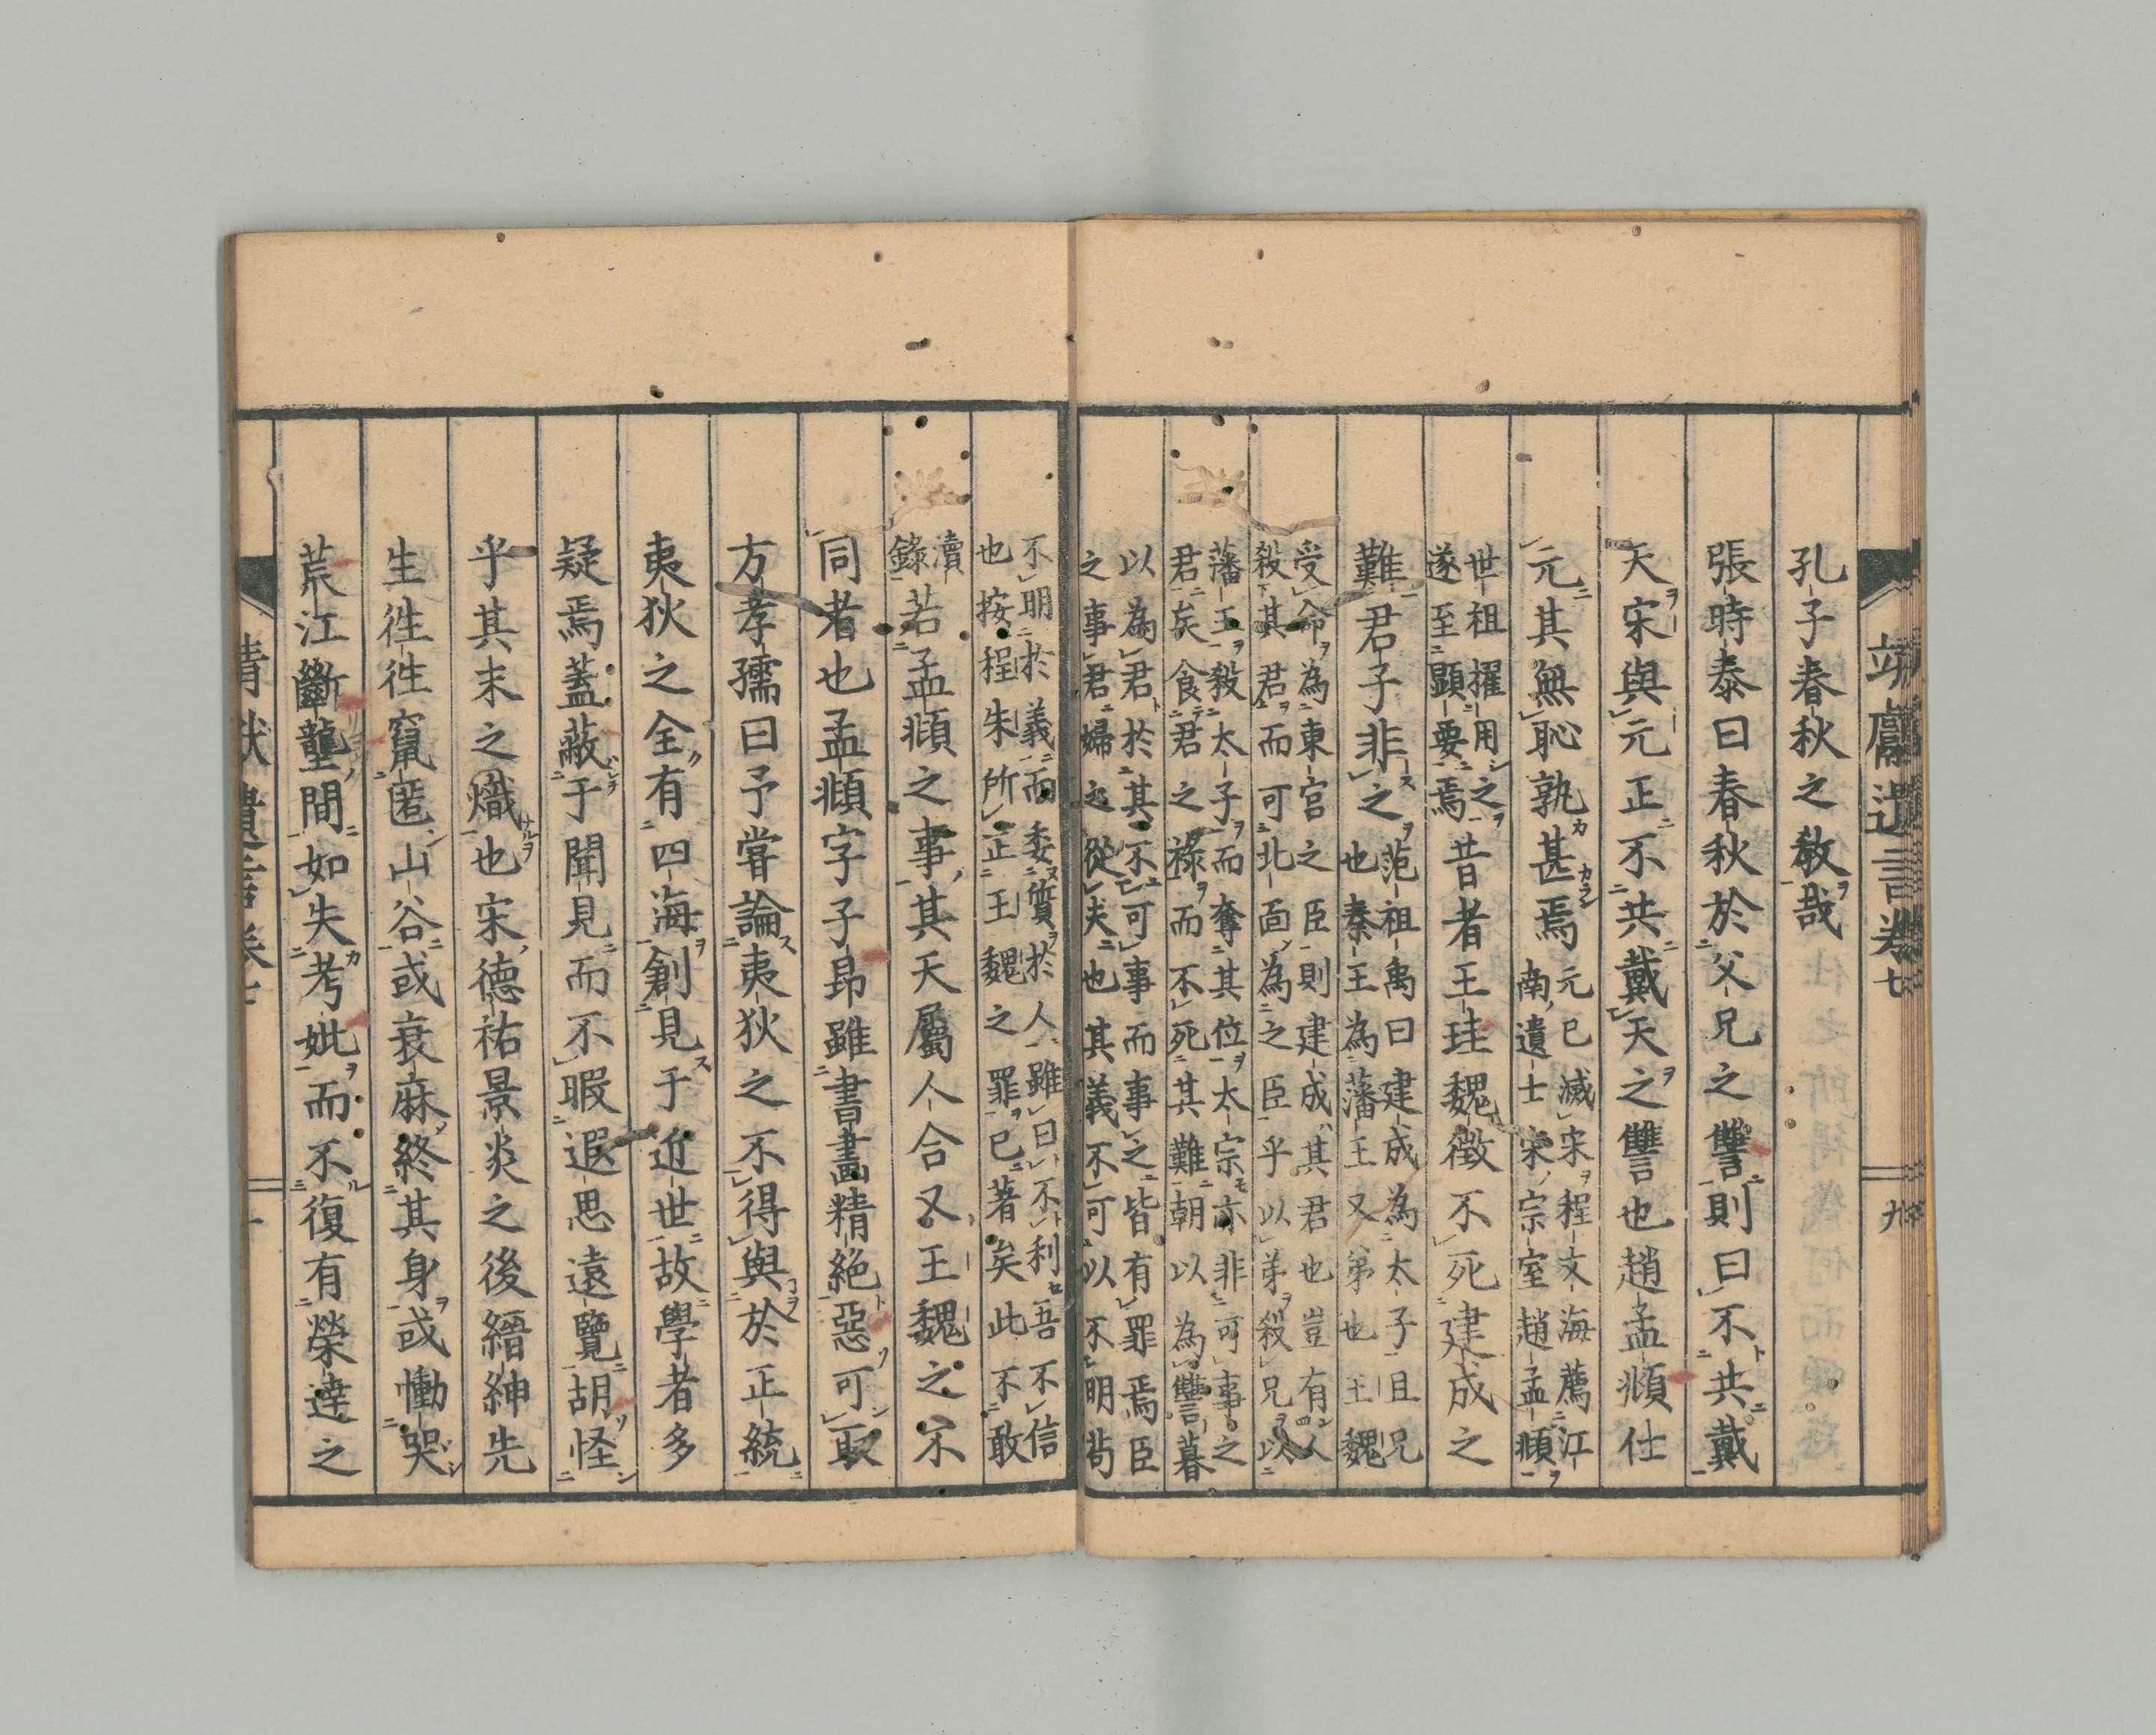 靖獻遺言卷七
九
孔子春秋之教哉
張時泰曰春秋於父兄之讐則曰不共戴
天宋與元正不共戴天之讐也趙孟頫仕
元其無恥孰甚焉
元已滅宋程文海薦江
南遺士宋宗室趙孟頫
世祖擢用之
遂至顯要焉
昔者王珪魏徵不死建成之
難君子非之
范祖禹曰建成為太子且兄
也秦王為藩王又弟也王魏
受命為東宮之臣則建成其君也豈有人
殺其君而可北面為之臣乎以弟殺兄以
藩王殺太子而奪其位太宗亦非可事之
君矣食君之祿而不死其難朝以為讐暮
以為君於其不可事而事之皆有罪焉臣
之事君婦之從夫也其義不可以不明苟
不明於義而委質於人雖曰不利吾不信
也按程朱所正王魏之罪已著矣此不敢
瀆
錄
若孟頫之事其天屬人合又王魏之不
同者也孟頫字子昂雖書畫精絶惡可取
方孝孺曰予嘗論夷狄之不得與於正統
夷狄之全有四海創見于近世故學者多
疑焉蓋蔽于聞見而不暇遐思遠覽胡怪
乎其末之熾也宋德祐景炎之後縉紳先
生徃徃竄匿山谷或衰麻終其身或慟哭
荒江斷壟間如失考妣而不復有榮達之
靖獻遺言卷七